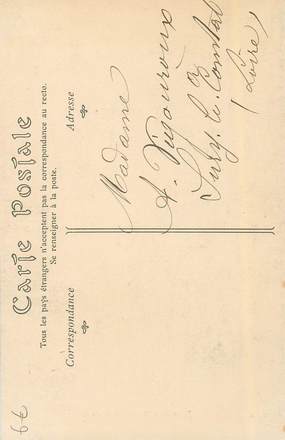 Carte Postale
Tous les pays étrangers n'acceptent pas la correspondance au recto.
Se renseigner à la poste.
Correspondance
Adresse
Madame
A. Vigouroux
Sury-le-Comtal
(Loire)
6€